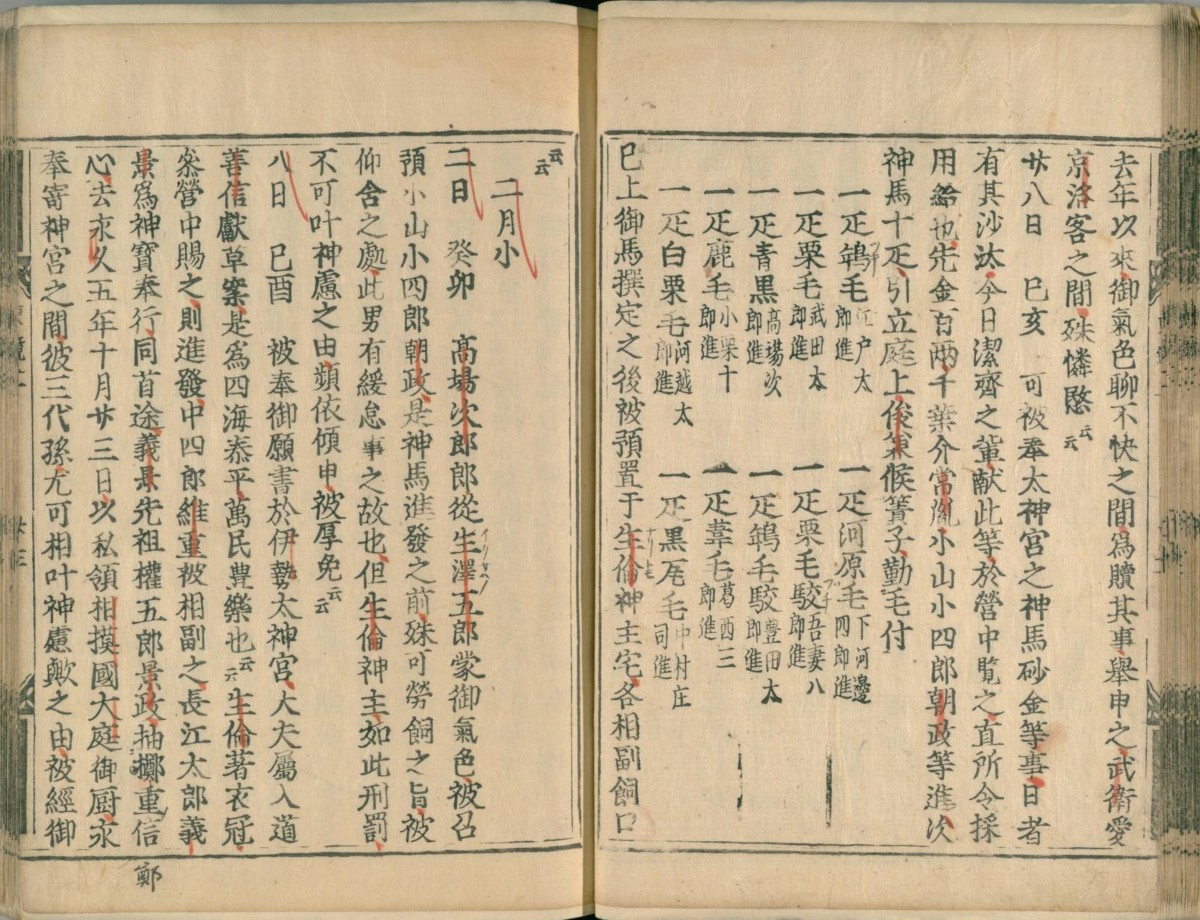 去年以來御氣色聊不快之間爲贖其事舉申之武衛愛
京洛客之間殊憐愍云云
廿八日 巳亥 可被奉太神宮之神馬砂金等事日者
有其沙汰今日潔齊之輩献此等於營中覧之直所令採
用給也先金百兩千葉介常胤小山小四郎朝政等進次
神馬十疋引立庭上俊兼候簀子勤毛付
一疋鵇毛江戸太郎進 一疋河原毛下河邊四郎進
一疋栗毛武田太郎進 一疋栗毛駮吾妻八郎進
一疋青黒高場次郎進 一疋鵇毛駮豊田太郎進
一疋鹿毛小栗十郎進 一疋葦毛葛西三郎進
一疋白栗毛河越太郎進 一疋黒鹿毛中村庄司進
巳上御馬撰定之後被預置于生倫神主宅各相副飼口
云云
二月小
二日 癸卯 髙場次郎郎從生澤五郎蒙御氣色被召
預小山小四郎朝政是神馬進發之前殊可勞飼之旨被
仰含之處此男有緩怠事之故也但生倫神主如此刑罰
不可叶神慮之由頻依傾申被厚免云云
八日 巳酉 被奉御願書於伊勢太神宮大夫屬入道
善信獻草案是爲四海泰平萬民豊樂也云云生倫著衣冠
叅營中賜之則進發中四郎維重被相副之長江太郎義
景爲神寶奉行同首途義景先祖權五郎景政抽擲重信
心去永久五年十月廿三日以私領相摸國大庭御厨永
奉寄神宮之間彼三代孫尤可相叶神慮歟之由被經御
鄭